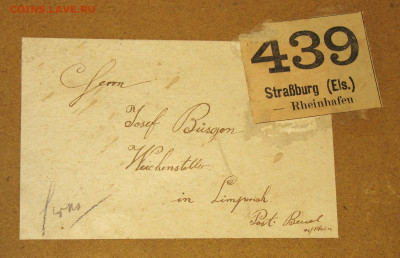 COINS.LAVE.RU
439
Straßburg (Els.)
— Rheinhafen
Herrn
Josef Büsgen
Weichensteller
in
Post Beuel
a/Rhein